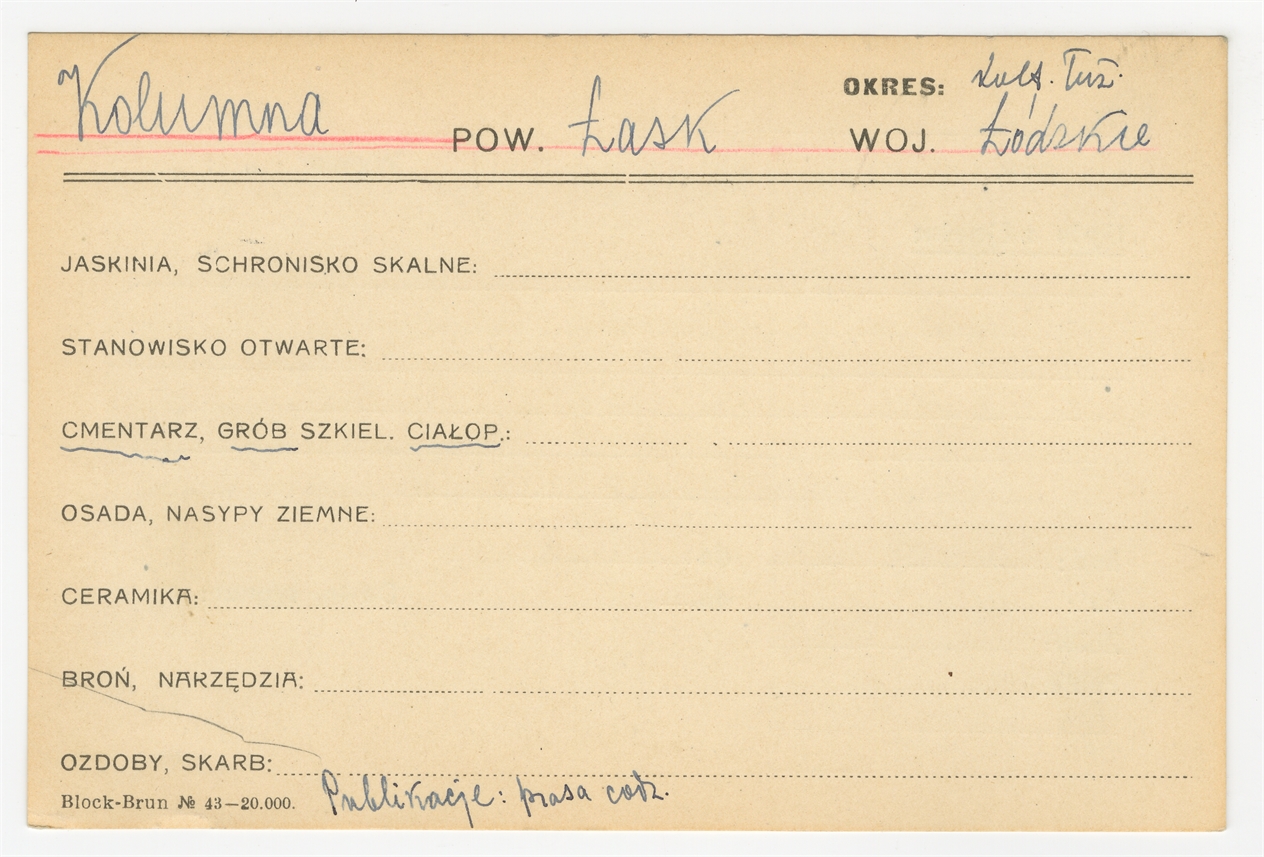 Kolumna POW. Łask OKRES: kult. Łuż.
WOJ. Łódzkie
JASKINIA, SCHRONISKO SKALNE:
STANOWISKO OTWARTE:
CMENTARZ, GRÓB SZKIEL. CIAŁOP.:
OSADA, NASYPY ZIEMNE:
CERAMIKA:
BROŃ, NARZĘDZIA:
OZDOBY, SKARB:
Block-Brun № 43—20.000. Publikacje: prasa codz.